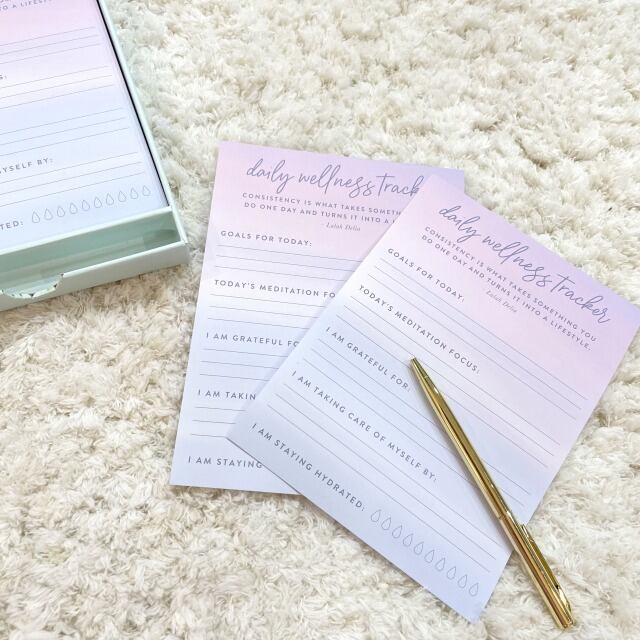 O A LIFESTYLE.
S:
MYSELF BY:
ATED:
daily wellness tracker
CONSISTENCY IS WHAT TAKES SOMETH
DO ONE DAY AND TURNS IT INTO A
- Lalah Delia
GOALS FOR TODAY:
TODAY'S MEDITATION FO
I AM GRATEFUL FO
I AM TAKING
I AM STAYING
daily wellness tracker
CONSISTENCY IS WHAT TAKES SOMETHING YOU
DO ONE DAY AND TURNS IT INTO A LIFESTYLE.
- Lalah Delia
GOALS FOR TODAY:
TODAY'S MEDITATION FOCUS:
I AM GRATEFUL FOR
I AM TAKING CARE OF MYSELF BY:
I AM STAYING HYDRATED: